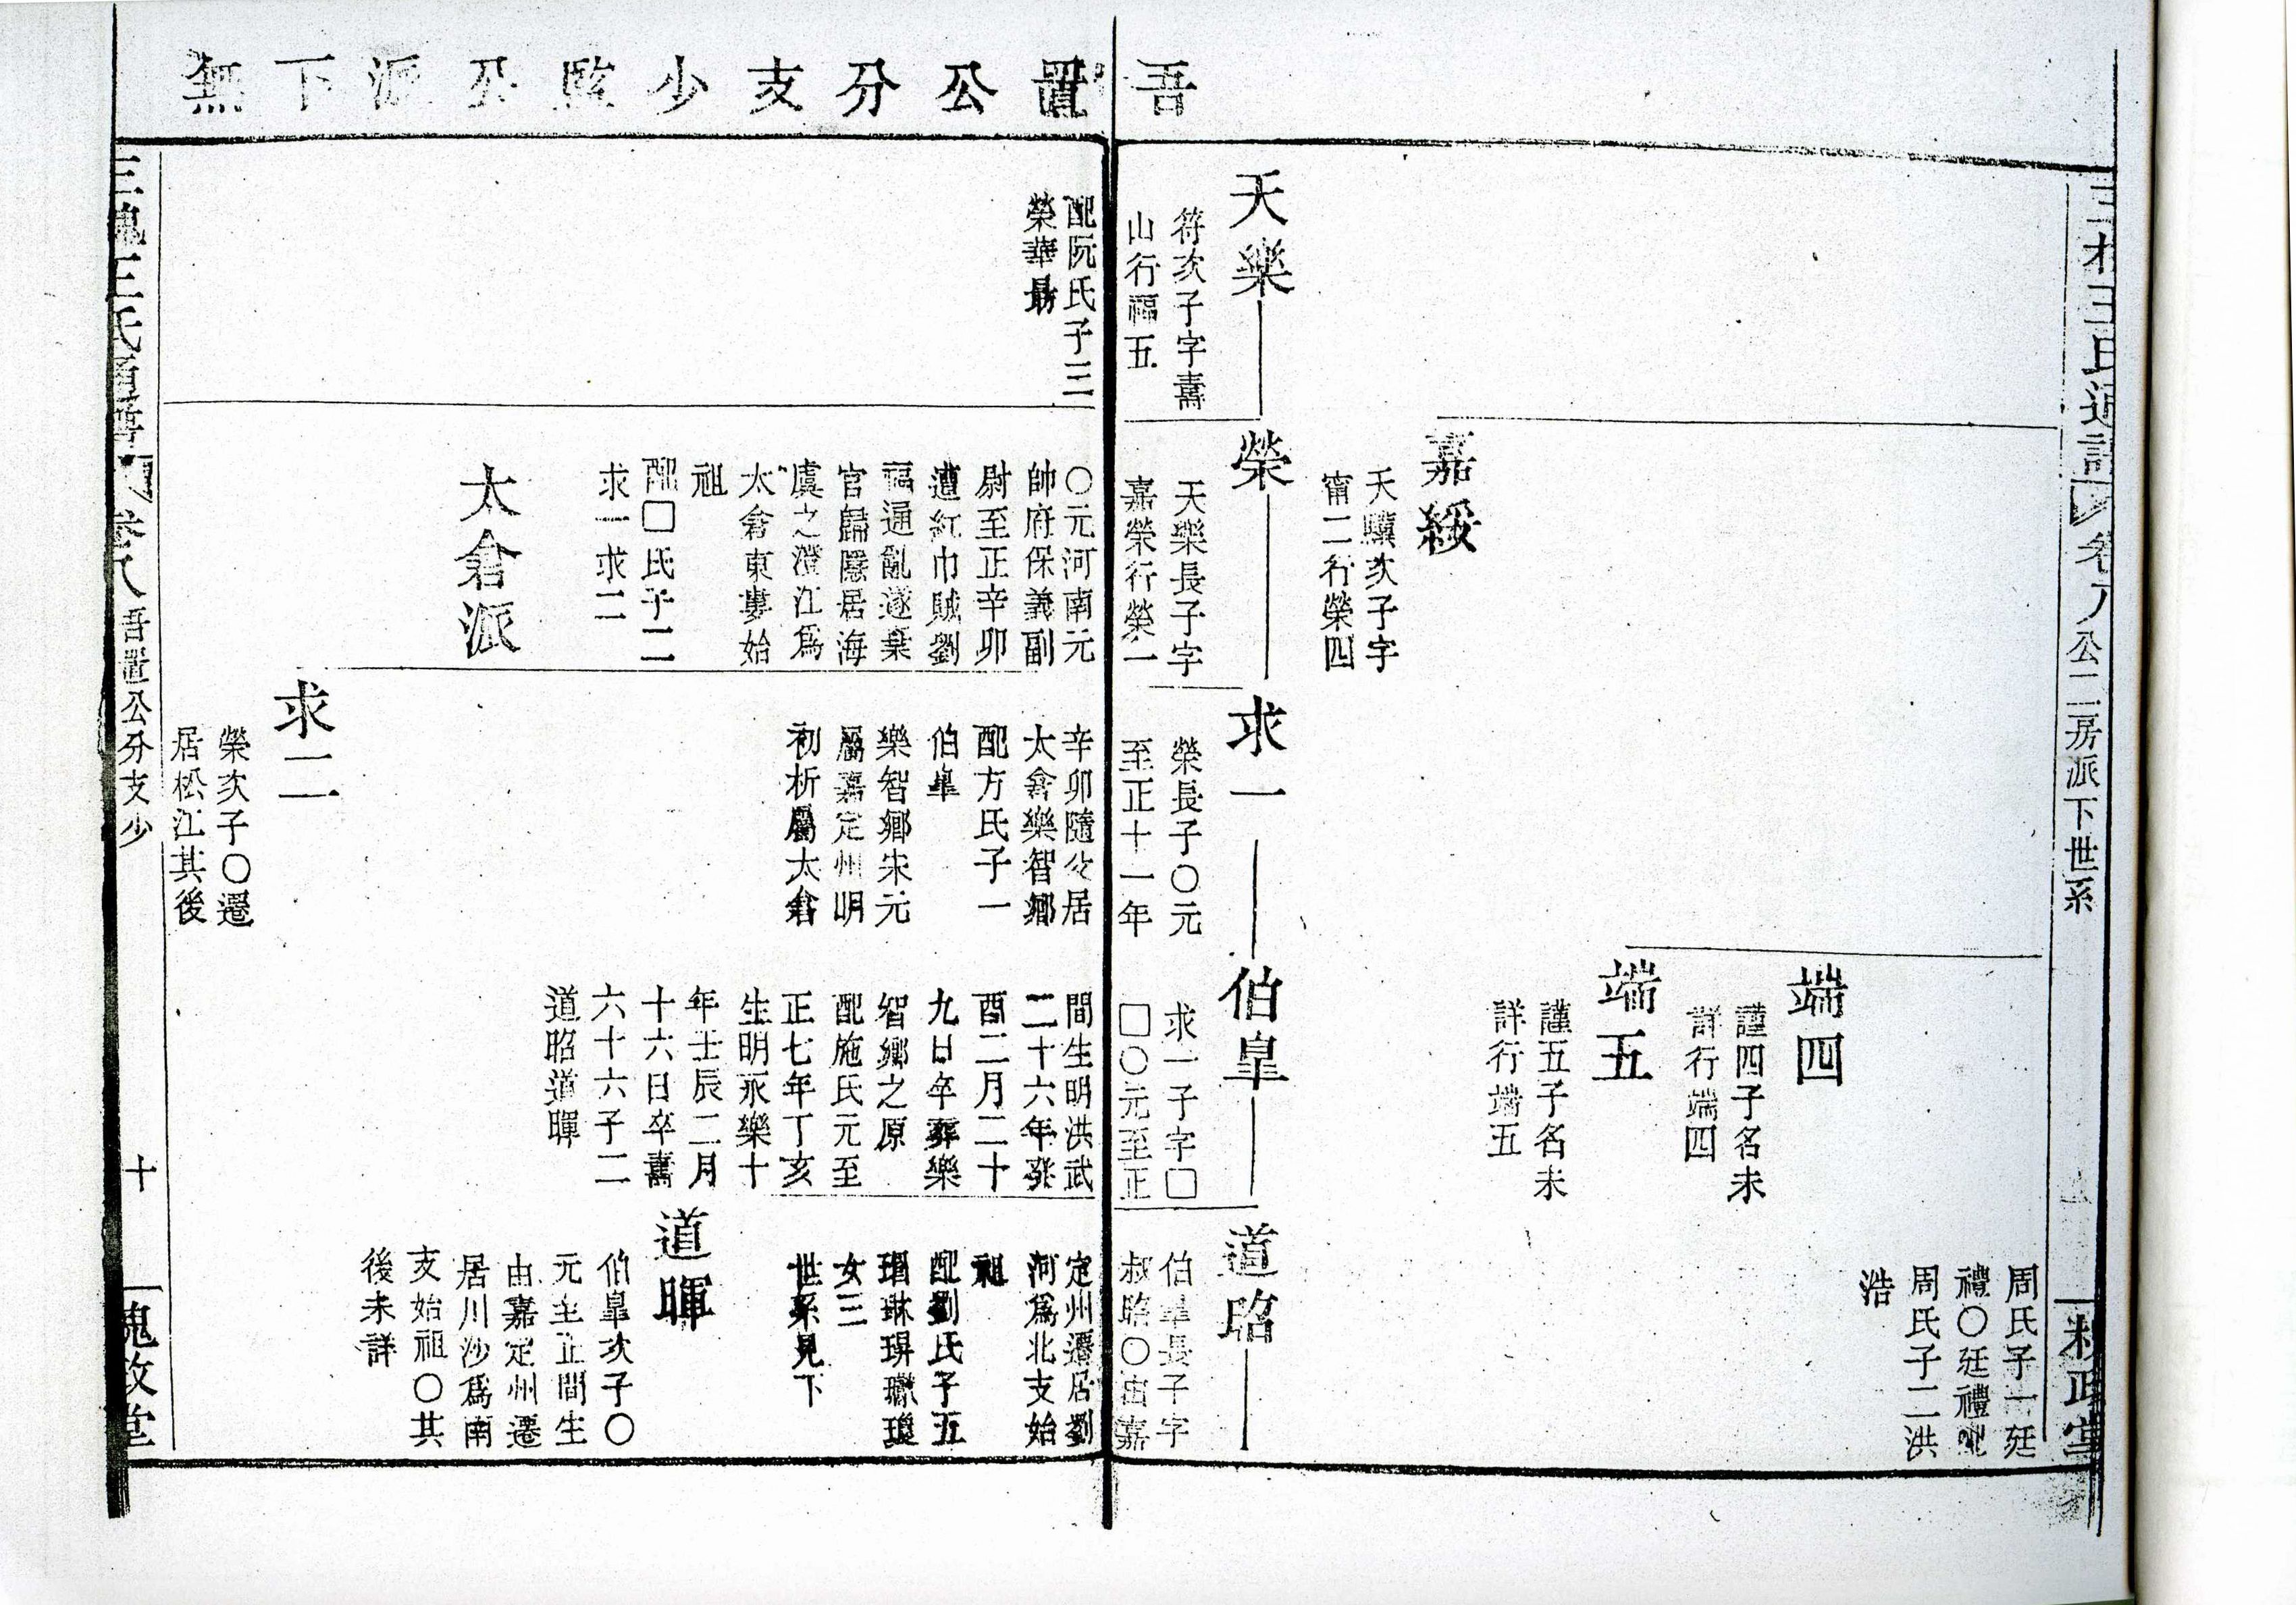 吾置公分支少監公派下無
三槐王氏通譜
卷八
公二房派下世系
周氏子一廷
禮〇廷禮配
周氏子二洪
浩
端四
謹四子名未
詳行端四
端五
謹五子名未
詳行端五
嘉綏
天驥次子字
甯二行榮四
天樂
符次子字壽
山行福五
榮
天樂長子字
嘉榮行榮一
求一
榮長子〇元
至正十一年
伯皐
求一子字□
□〇元至正
道昭
伯皐長子字
叔昭〇由嘉
配阮氏子三
榮華勗
〇元河南元
帥府保義副
尉至正辛卯
遭紅巾賊劉
福通亂遂棄
官歸隱居海
虞之澄江爲
太倉東婁始
祖
配□氏子二
求一求二
太倉派
辛卯隨父居
太倉樂智鄉
配方氏子一
伯皐
樂智鄉宋元
屬嘉定州明
初析屬太倉
求二
榮次子〇遷
居松江其後
間生明洪武
二十六年癸
酉二月二十
九日卒葬樂
智鄉之原
配施氏元至
正七年丁亥
生明永樂十
年壬辰二月
十六日卒壽
六十六子二
道昭道暉
定州遷居劉
河爲北支始
祖
配劉氏子五
琩琳琾瓛瓊
女三
世系見下
道暉
伯皐次子〇
元至正間生
由嘉定州遷
居川沙爲南
支始祖〇其
後未詳
三槐王氏通譜
卷八
吾置公分支少
十
槐政堂